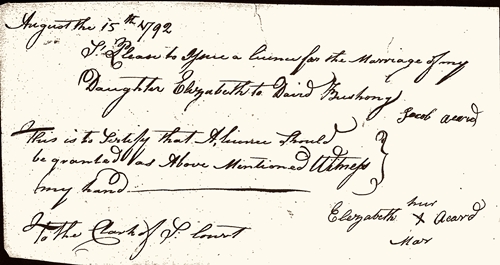 August the 15th 1792
Sr. Please to Issue a licence for the Marriage of my
Daughter Elizabeth to David Bushong
Jacob acard
This is to Certify that A, licence Should
be granted as Above Mentioned Witness
my hand
her
Elizabeth X Acard
Mar
To the Clark of S. Court